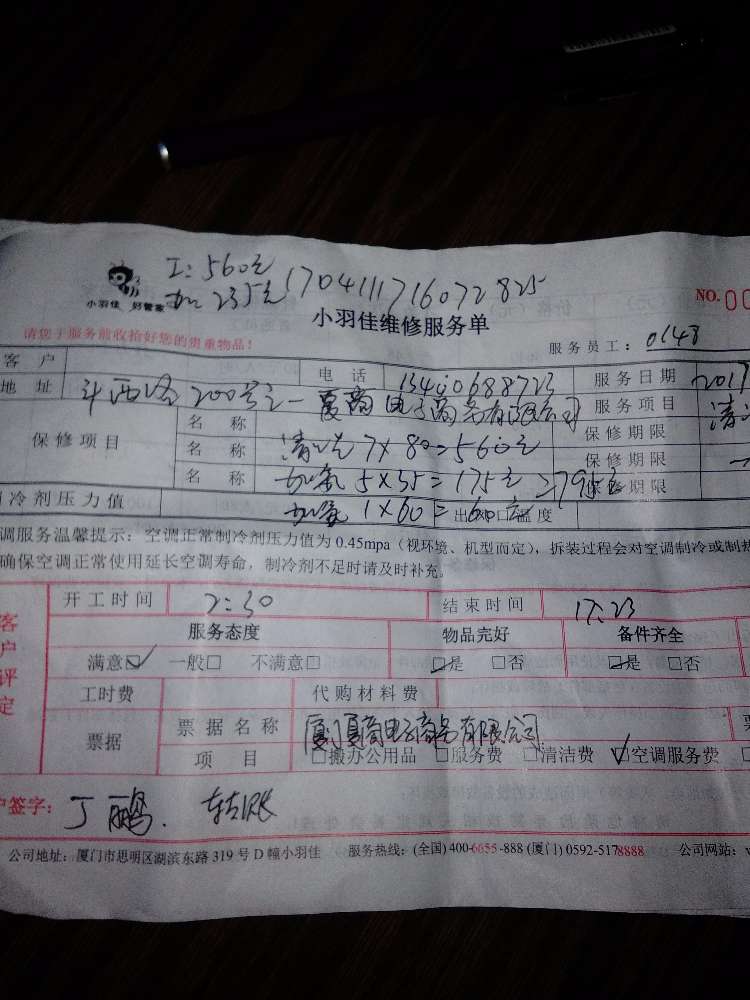 工:560元
加:235元
17041117160728​25
小羽佳 好管家
NO.00
小羽佳维修服务单
请您于服务前收拾好您的贵重物品!
服务员工:0148
客 户 电 话 13400688723 服务日期 2017
地 址 斗西路200号之一 夏商电子商务有限公司 服务项目 清
保修项目 名 称 保修期限
名 称 清洗7×80=560元 保修期限
名 称 加氧5×35=175元 =795元 保修期限
冷剂压力值 加氧 1×60=60元 出 口 温度
调服务温馨提示:空调正常制冷剂压力值为0.45mpa(视环境、机型而定),拆装过程会对空调制冷或制热
确保空调正常使用延长空调寿命,制冷剂不足时请及时补充。
开工时间 2:30 结束时间 17:23
客户评定
服务态度 物品完好 备件齐全
满意☑ 一般□ 不满意□ ☑是 □否 ☑是 □否
工时费 代购材料费
票据 票据名称 厦门夏商电子商务有限公司
项 目 □搬办公用品 □服务费 □清洁费 ☑空调服务费
户签字: 丁鹏. 转账
公司地址:厦门市思明区湖滨东路319号D幢小羽佳 服务热线:(全国)400-6655-888(厦门)0592-5178888 公司网站: